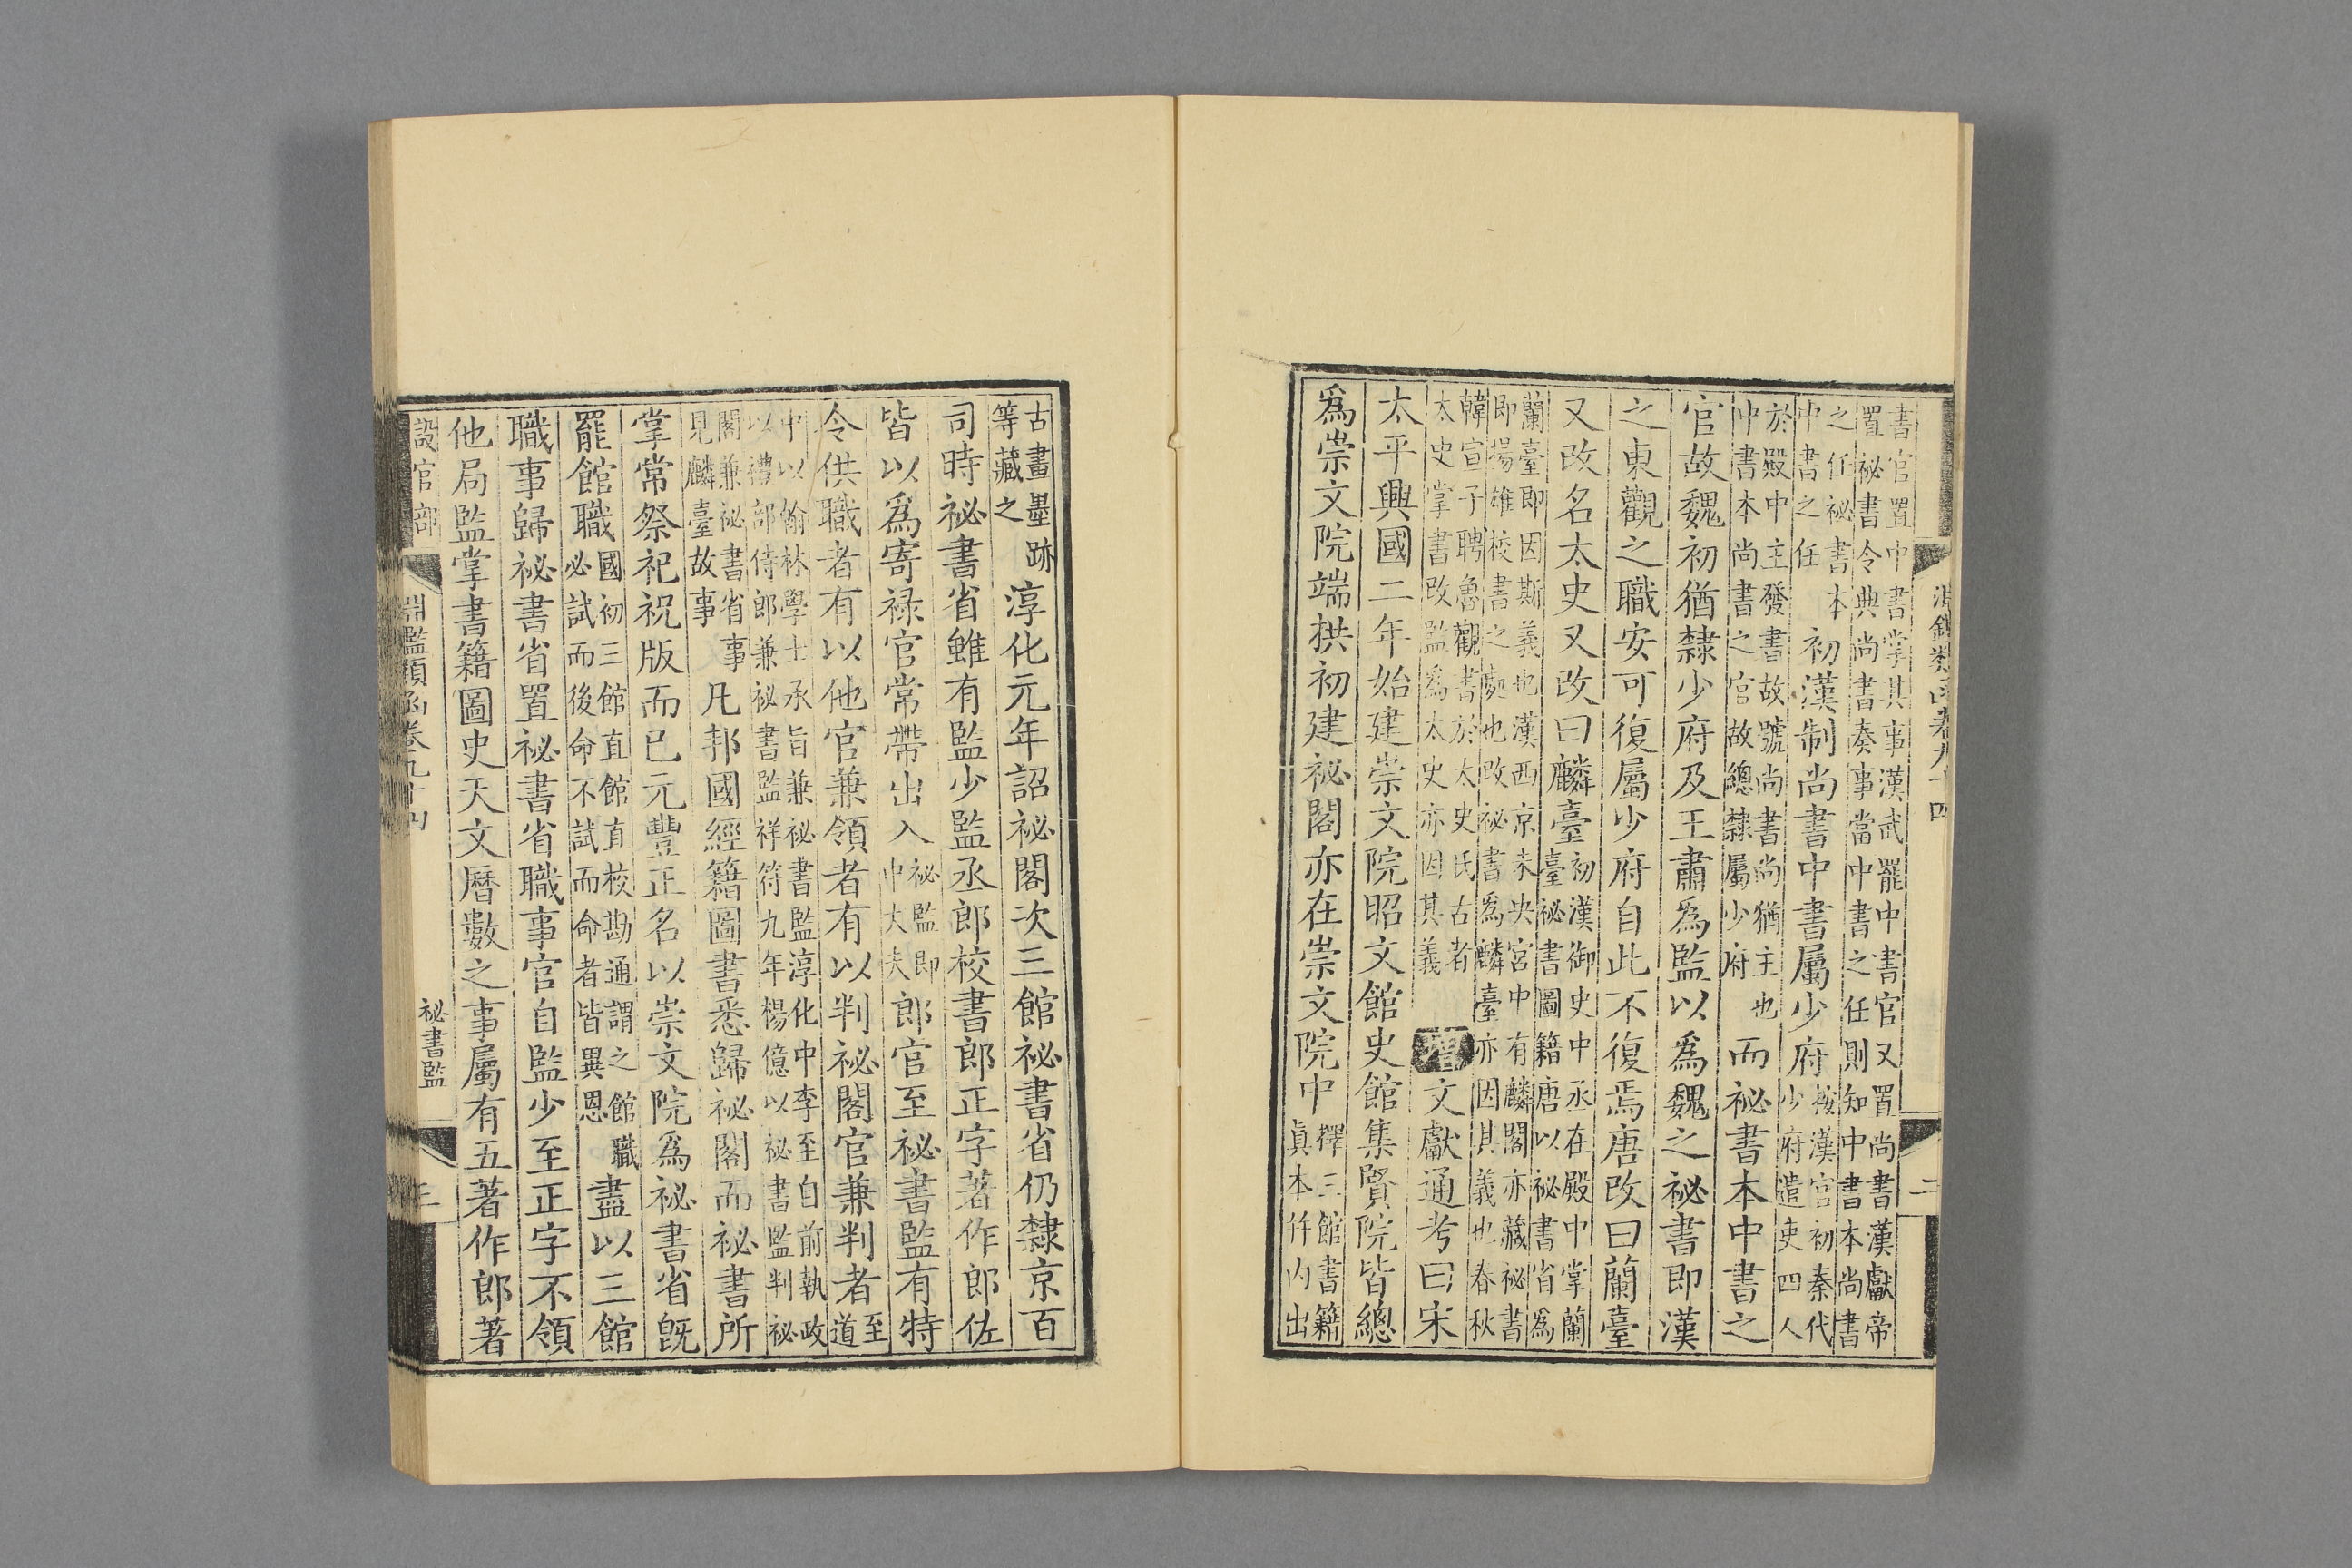 書官置中書掌其事漢武罷中書官又置尚書漢獻帝
置祕書令典尚書奏事當中書之任則知中書本尚書
之任祕書本
中書之任
初漢制尚書中書屬少府
按漢官初秦代
少府遣吏四人
於殿中主發書故號尚書尚猶主也
中書本尚書之官故總隸屬少府
而祕書本中書之
官故魏初猶隸少府及王肅爲監以爲魏之祕書即漢
之東觀之職安可復屬少府自此不復焉唐改曰蘭臺
又改名太史又改曰麟臺
初漢御史中丞在殿中掌蘭
臺祕書圖籍唐以祕書省爲
蘭臺即因斯義也漢西京未央宮中有麟閣亦藏祕書
即揚雄校書之處也改祕書爲麟臺亦因其義也春秋
韓宣子聘魯觀書於太史氏古者
太史掌書改監爲太史亦因其義
增文獻通考曰宋
太平興國二年始建崇文院昭文館史館集賢院皆總
爲崇文院端拱初建祕閣亦在崇文院中
擇三館書籍
眞本并內出
古畫墨跡
等藏之
淳化元年詔祕閣次三館祕書省仍隸京百
司時祕書省雖有監少監丞郎校書郎正字著作郎佐
皆以爲寄祿官常帶出入
祕監即
中大夫
郎官至祕書監有特
令供職者有以他官兼領者有以判祕閣官兼判者
至
道
中以翰林學士承旨兼祕書監淳化中李至自前執政
以禮部侍郎兼祕書監祥符九年楊億以祕書監判祕
閣兼祕書省事
見麟臺故事
凡邦國經籍圖書悉歸祕閣而祕書所
掌常祭祀祝版而已元豐正名以崇文院爲祕書省旣
罷館職
國初三館直館直校勘通謂之館職
必試而後命不試而命者皆異恩
盡以三館
職事歸祕書省置祕書省職事官自監少至正字不領
他局監掌書籍圖史天文曆數之事屬有五著作郎著
設官部
淵鑑類函卷九十四
祕書監
三